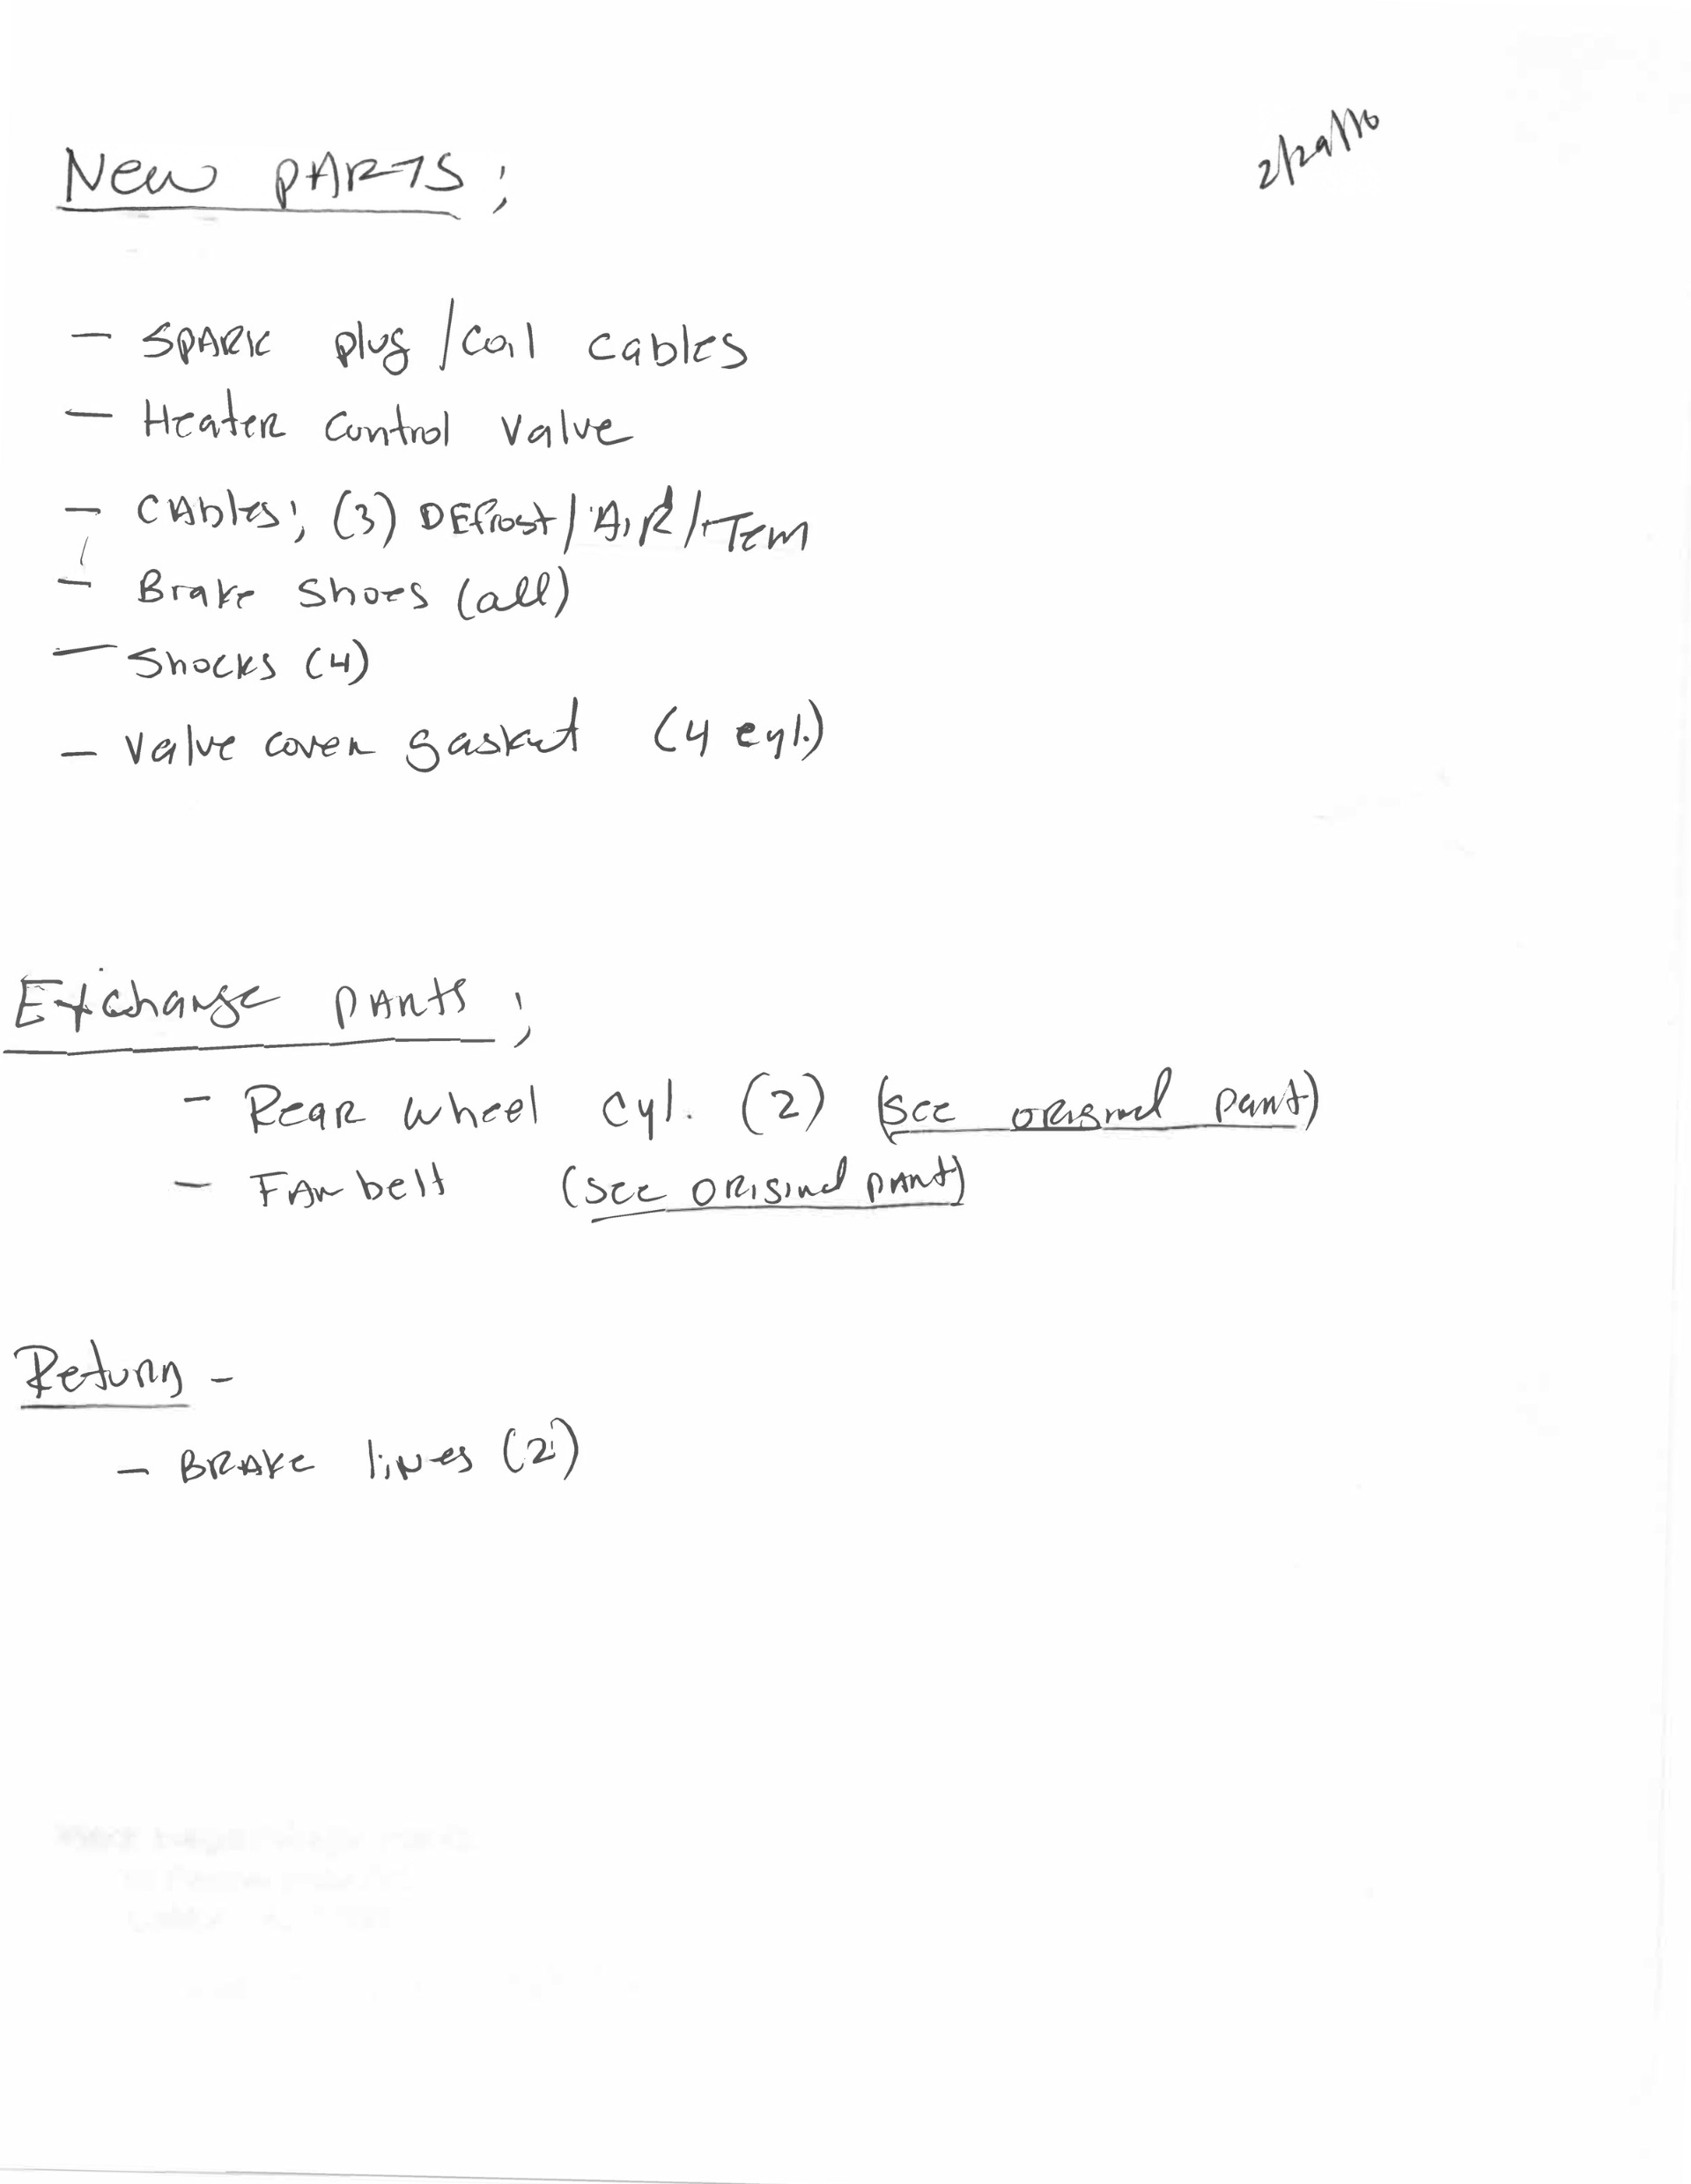 2/29/16
New PARTS;
- SPARK plug/coil cables
- Heater control valve
- CAbles; (3) DEfrost/AIR/Tem
- Brake shoes (all)
- Shocks (4)
- Valve cover gasket (4 cyl.)
Exchange pArts;
- Rear wheel cyl. (2) (see original part)
- FAn belt (see ORiginal pArt)
Return -
- BRAKe liNes (2)